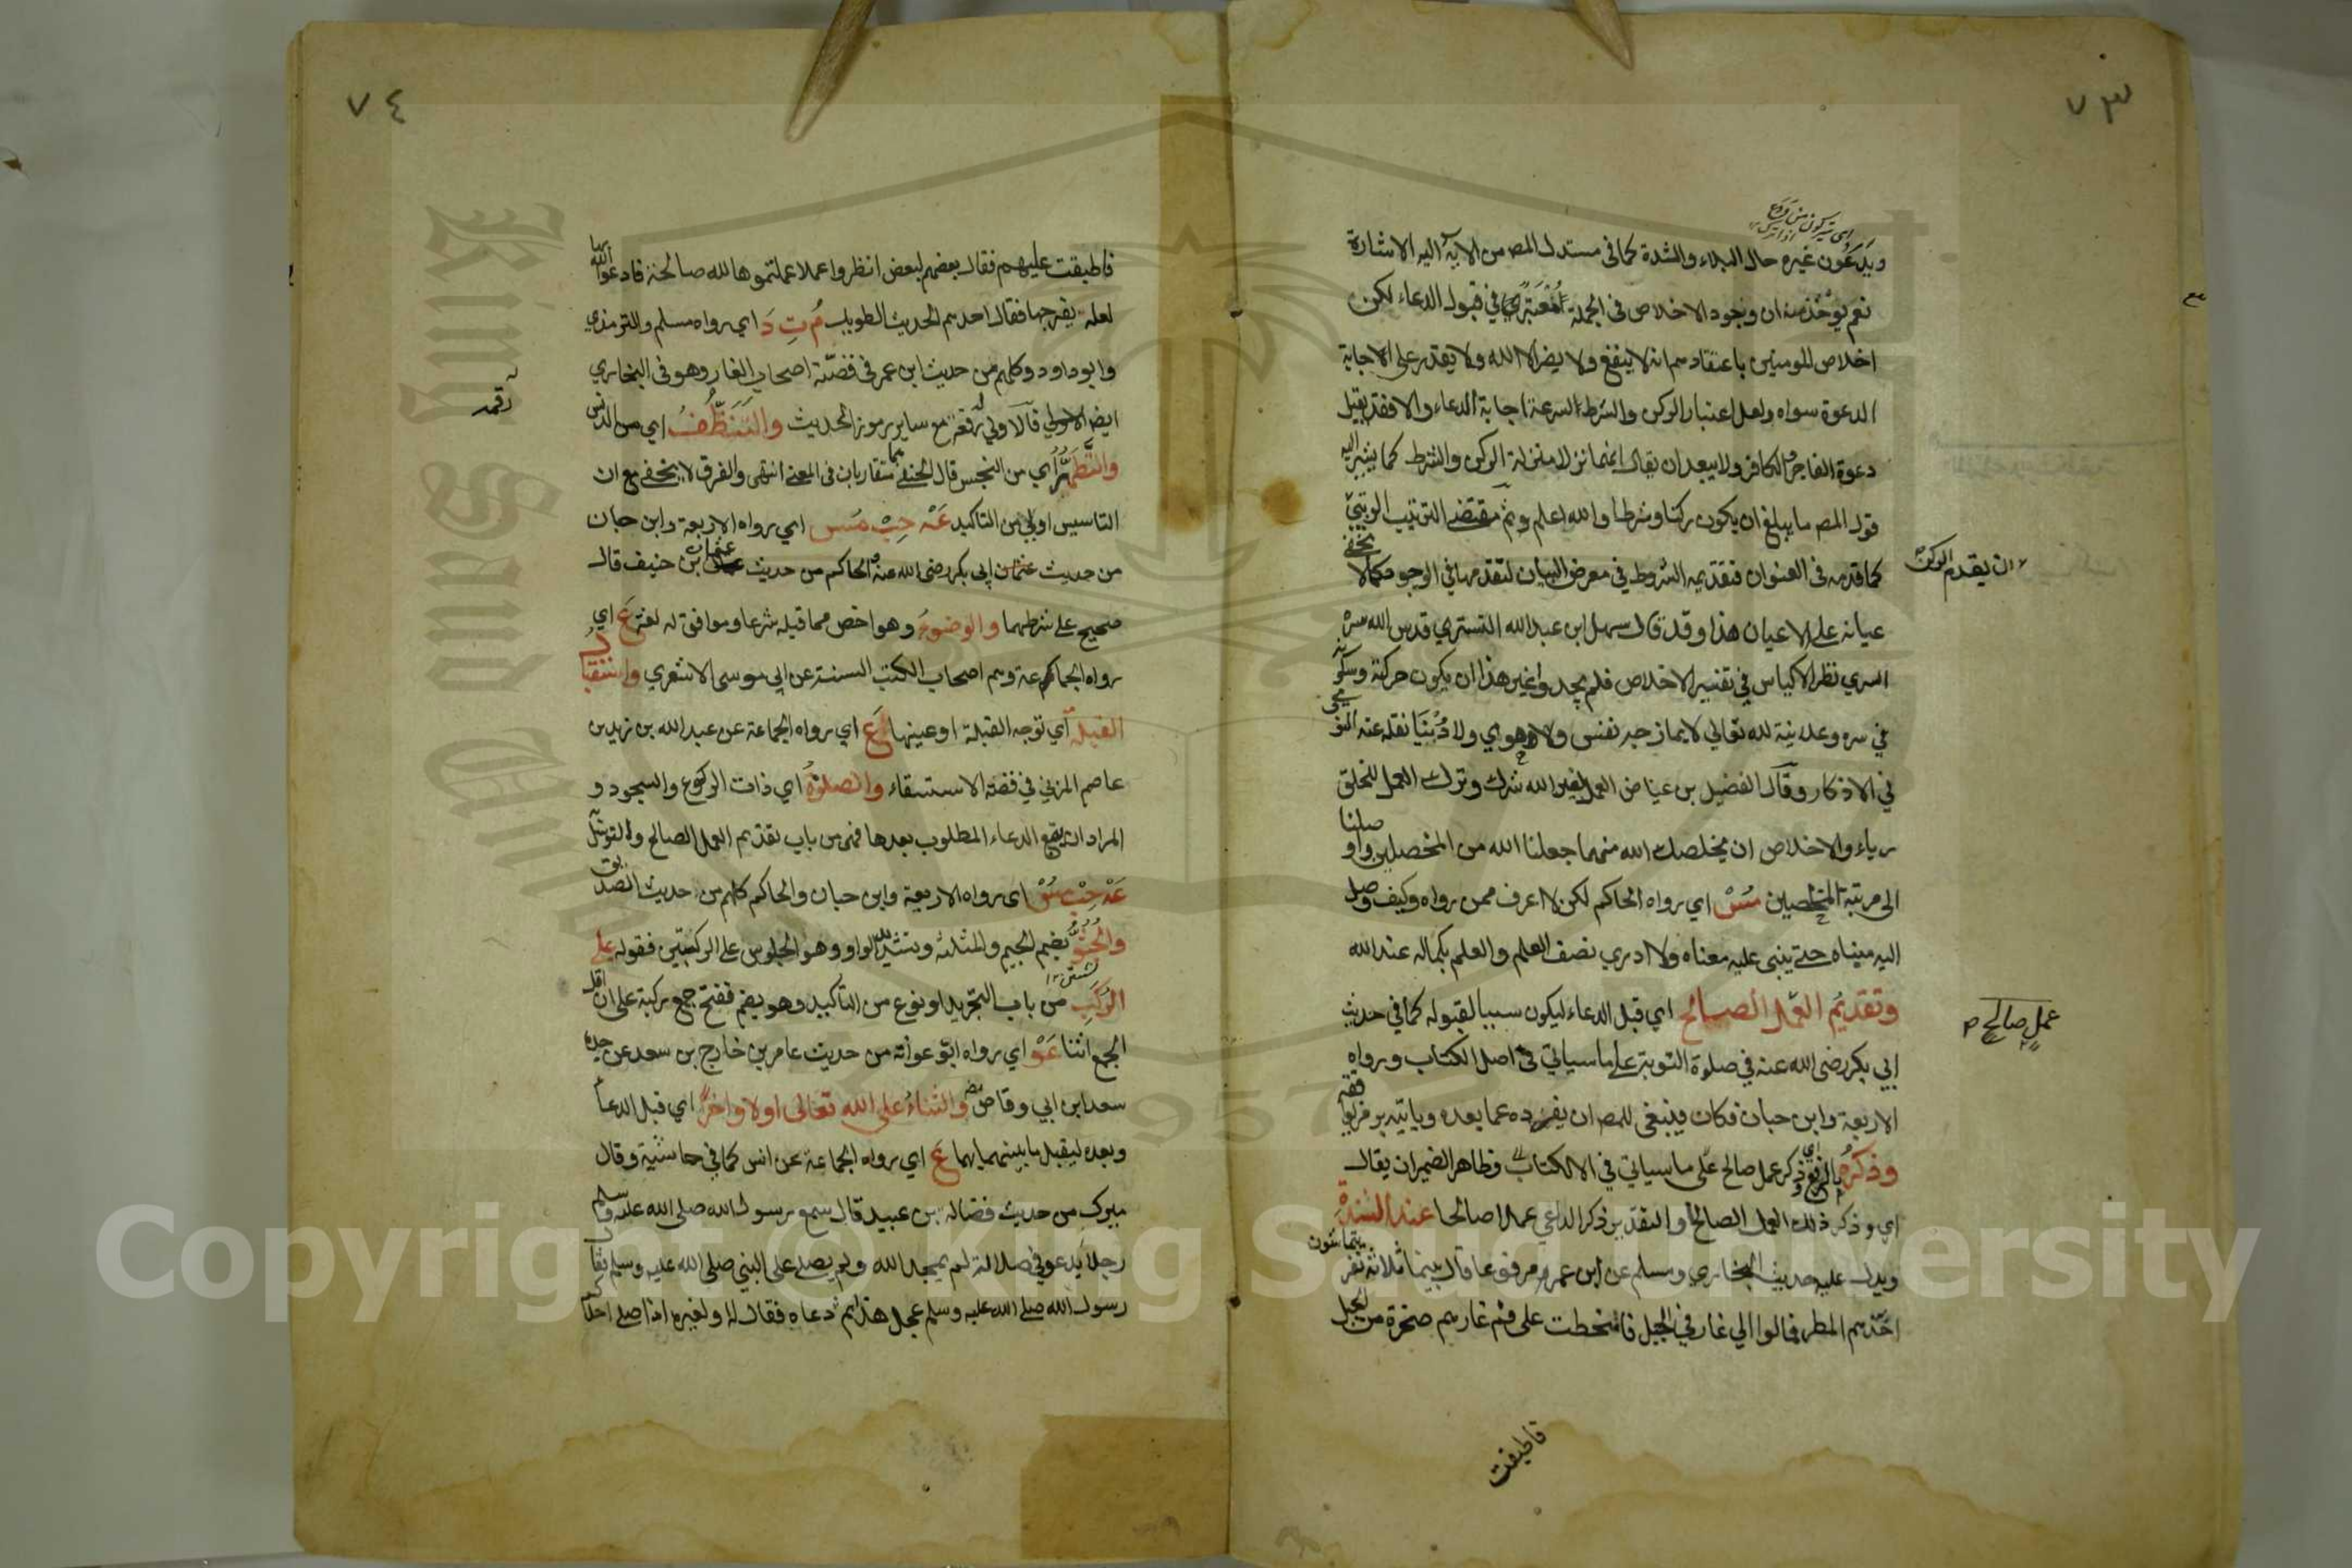 ٧٣
ويدعون غيره حال البلاء والشدة كما في مستدل المص من الاية اليه الاشارة
نعم يوخذ منه ان وجود الاخلاص في الجملة معتبر في قبول الدعاء لكن
اخلاص المومنين باعتقادهم انه لا ينفع ولا يضر الا الله ولا يقدر على الاجابة
الدعوة سواه ولعل اعتبار الركن والشرط لسرعة اجابة الدعاء والا فقد يقبل
دعوة الفاجر والكافر ولا يبعد ان يقال انهما نزلا منزلة الركن والشرط كما يشير اليه
قول المص ما يبلغ ان يكون ركنا وشرطا والله اعلم وثم مقتضى الترتيب الرتبي
ان يقدم الركن
كما قدمه في العنوان فتقديمه الشروط في معرض البيان لتقدمها في الوجود كما لا يخفى
عيانه على الاعيان هذا وقد قال سهل ابن عبد الله التستري قدس الله سره
السري نظر الاكياس في تفسير الاخلاص فلم يجدوا غير هذا ان يكون حركته وسكونه
في سره وعلانيته لله تعالى لا يمازجه نفس ولا هوي ولا دنيا نقله عنه النووي
في الاذكار وقال الفضيل بن عياض العمل لغير الله شرك وترك العمل للخلق
رياء والاخلاص ان يخلصك الله منهما جعلنا الله من المخلصين واوصلنا
الى مرتبة المخلصين مس اي رواه الحاكم لكن لا اعرف ممن رواه وكيف وصل
اليه مبناه حتى يبنى عليه معناه ولا ادري نصف العلم والعلم بكماله عند الله
وتقديم العمل الصالح اي قبل الدعاء ليكون سببا لقبوله كما في حديث
عمل صالح
ابي بكر رضى الله عنه في صلوة التوبة على ما سياتي في اصل الكتاب ورواه
الاربعة وابن حبان فكان ينبغى للمص ان يفرده عما بعده وياتيه برمز يوافقه
وذكره بالرفع اي ذكر عمل صالح على ما سياتي في الكتاب وظاهر الضمير ان يقال
اي وذكر ذلك العمل الصالح والتقدير ذكر الداعي عملا صالحا عند الشدة
ويدل عليه حديث البخاري ومسلم عن ابن عمر مرفوعا قال بينما ثلاثة نفر يتماشون
اخذهم المطر فمالوا الي غار في الجبل فانحطت على فم غارهم صخرة من الجبل
فاطبقت
٧٤
فاطبقت عليهم فقال بعضهم لبعض انظروا عملا عملتموها لله صالحة فادعوا الله بها
لعله يفرجها فقال احدهم الحديث الطويل م ت د اي رواه مسلم والترمذي
وابو داود وكلهم من حديث ابن عمر في قصة اصحاب الغار وهو في البخاري
رقمه
ايضا فالاولي رقمه مع ساير رموز الحديث والتنظف اي من الدنس
والتطهر اي من النجس قال الحنفي هما متقاربان في المعنى انتهى والفرق لا يخفى مع ان
التاسيس اولي من التاكيد عه حب مس اي رواه الاربعة وابن حبان
من حديث ابي بكر رضى الله عنه والحاكم من حديث عثمان بن حنيف قال
صحيح على شرطهما والوضوء وهو اخص مما قبله شرعا وموافق له لغة ع اي
رواه الجماعة وهم اصحاب الكتب الستة عن ابي موسى الاشعري واستقبال
القبلة اي توجه القبلة او عينها ع اي رواه الجماعة عن عبد الله بن زيد بن
عاصم المزني في قصة الاستسقاء والصلوة اي ذات الركوع والسجود و
المراد ان يقع الدعاء المطلوب بعدها فهى من باب تقديم العمل الصالح والتوسل
عه حب مس اى رواه الاربعة وابن حبان والحاكم كلهم من حديث الصديق
والجثو بضم الجيم والمثلثة وتشديد الواو وهو الجلوس على الركبتين فقوله على
الركب من باب التجريد او نوع من التاكيد وهو بضم ففتح جمع ركبة على ان اقل
الجمع اثنا عو اي رواه ابو عوانة من حديث عامر بن خارج بن سعد عن جده
سعد ابن ابي وقاص والثناء على الله تعالى اولا واخرا اي قبل الدعاء
وبعده ليقبل ما بينهما بهما ع اي رواه الجماعة عن انس كما في حاشية وقال
ميرك من حديث فضالة بن عبيد قال سمع رسول الله صلى الله عليه وسلم
رجلا يدعو في صلاته لم يمجد الله ولم يصل على النبي صلى الله عليه وسلم فقال
رسول الله صلى الله عليه وسلم عجل هذا ثم دعاه فقال له ولغيره اذا صلى احدكم